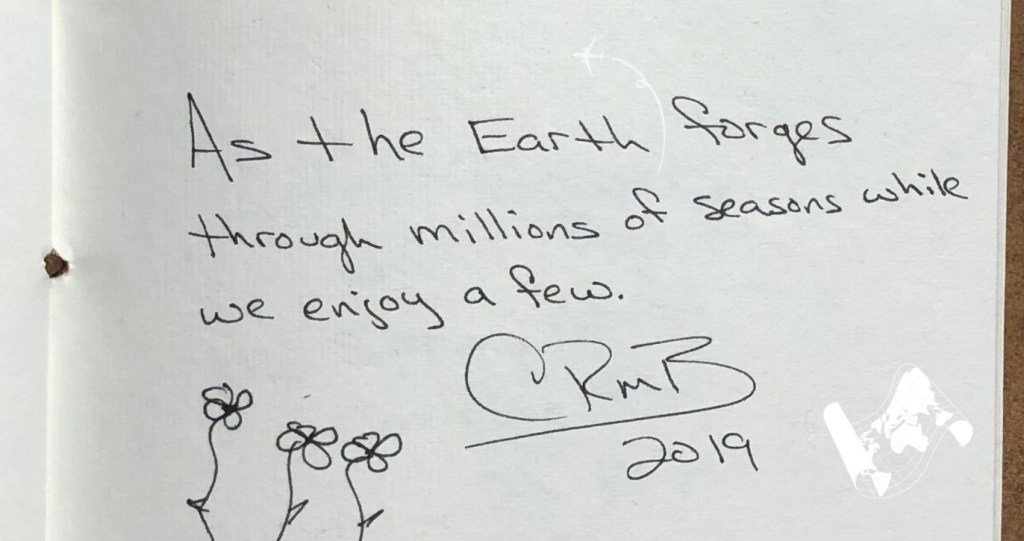 As the Earth forges
through millions of seasons while
we enjoy a few.
CRmB
2019